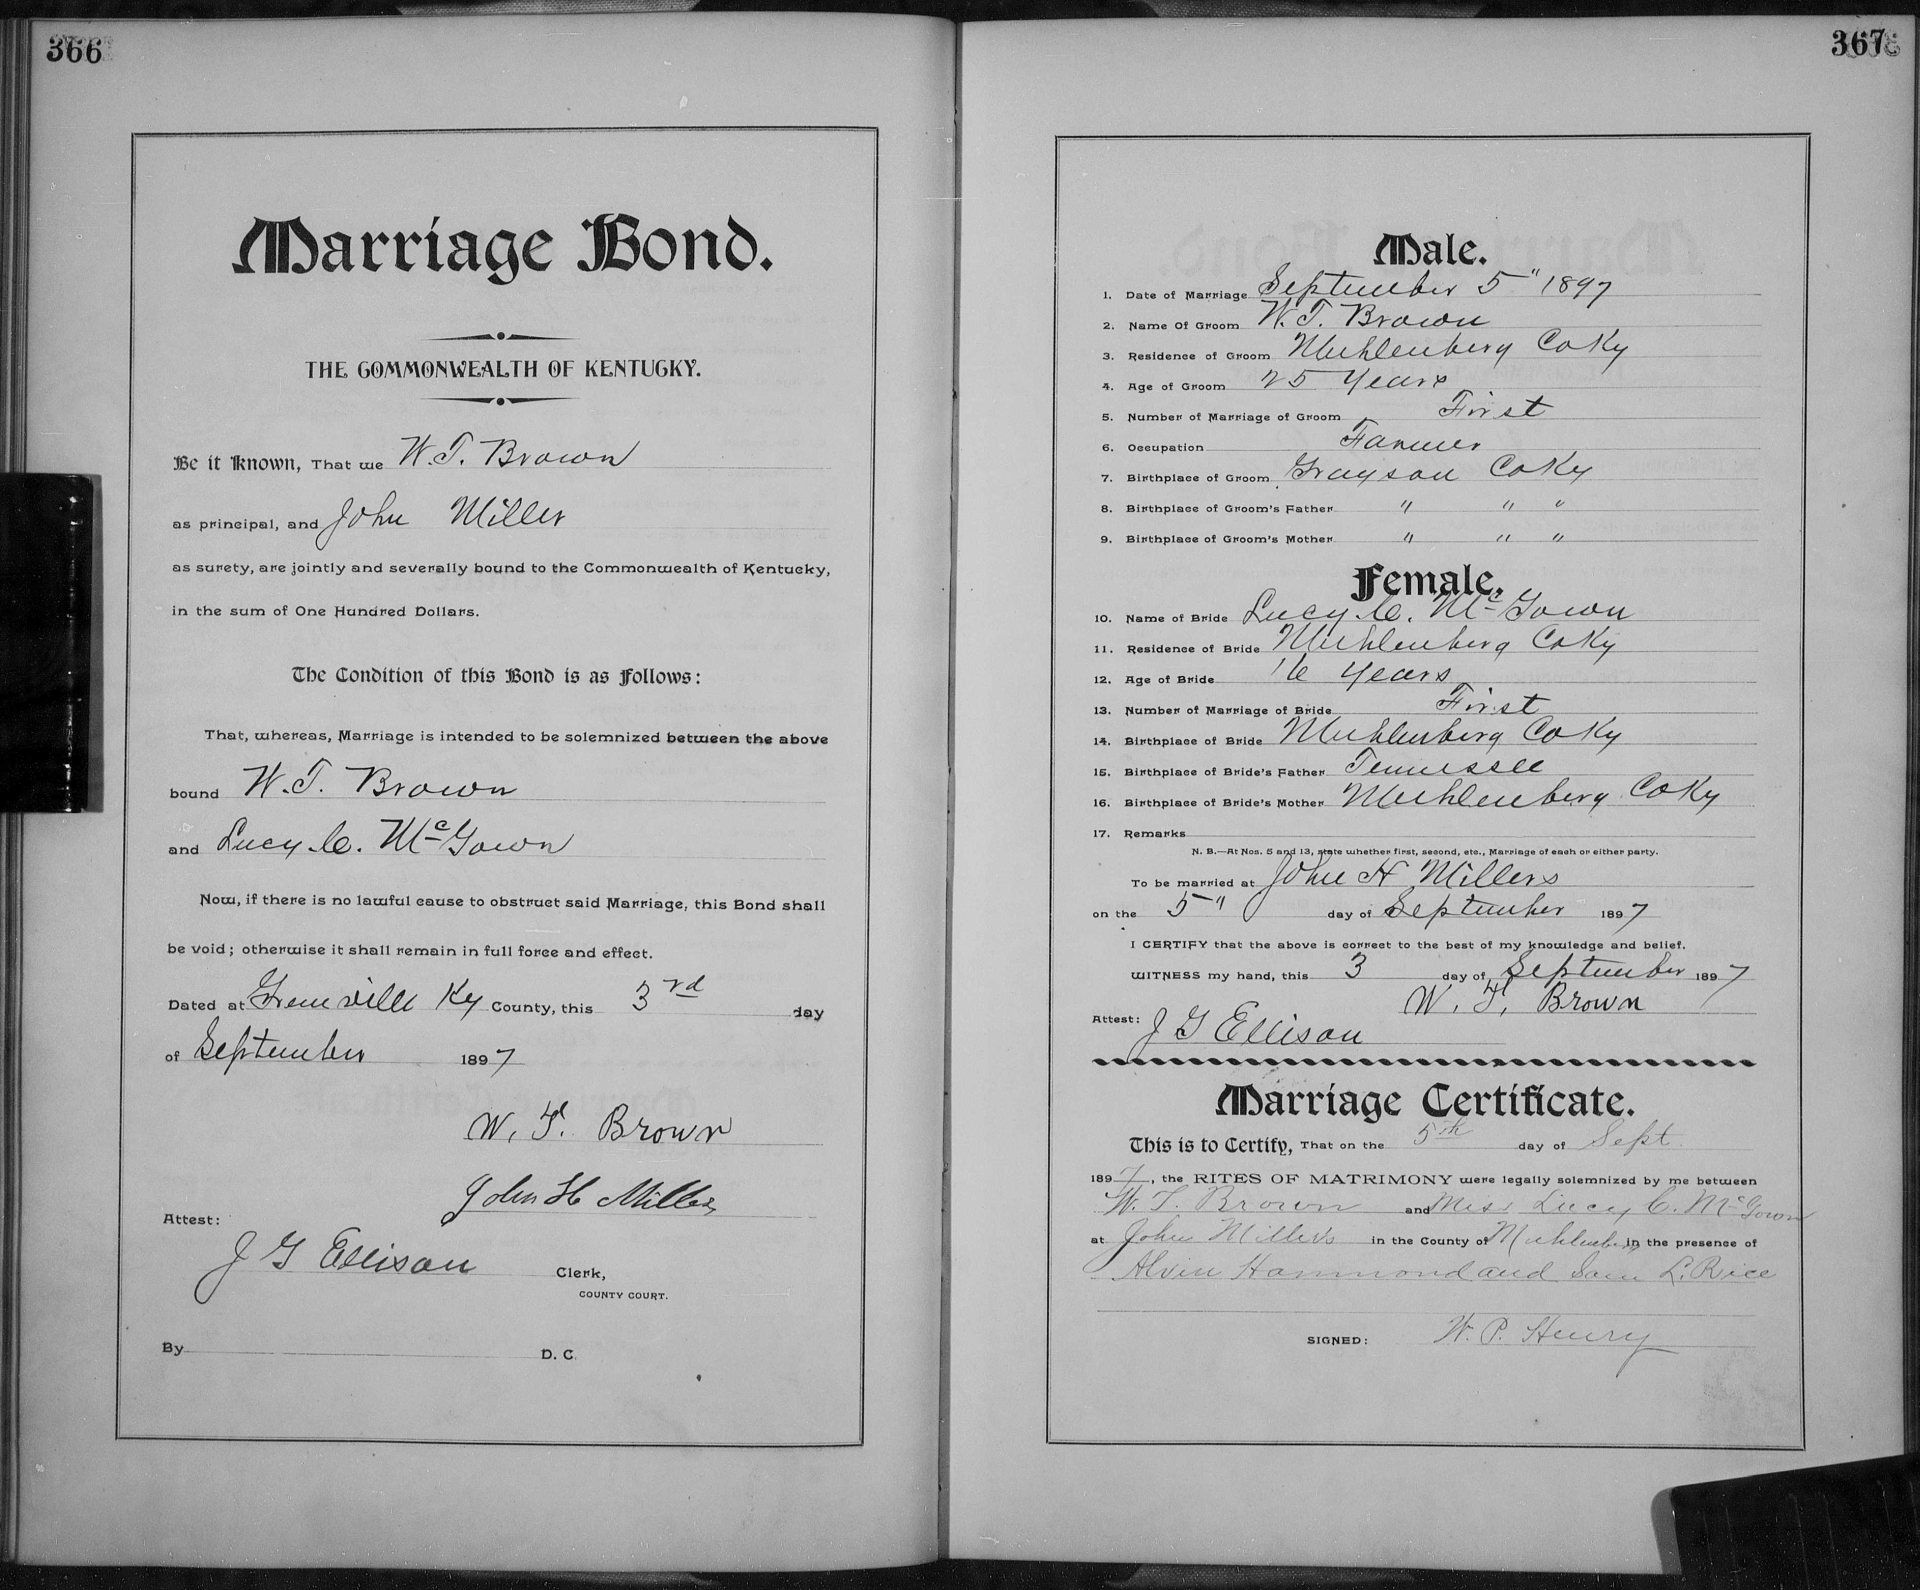 366
Marriage Bond.
THE COMMONWEALTH OF KENTUCKY.
Be it Known, That we W. T. Brown
as principal, and John Miller
as surety, are jointly and severally bound to the Commonwealth of Kentucky,
in the sum of One Hundred Dollars.
The Condition of this Bond is as Follows:
That, whereas, Marriage is intended to be solemnized between the above
bound W. T. Brown
and Lucy C. McGown
Now, if there is no lawful cause to obstruct said Marriage, this Bond shall
be void; otherwise it shall remain in full force and effect.
Dated at Greenville Ky County, this 3rd day
of September 1897
W. T. Brown
John H Miller
Attest:
J G Ellison Clerk,
COUNTY COURT.
By D. C.
367
Male.
1. Date of Marriage September 5" 1897
2. Name Of Groom W. T. Brown
3. Residence of Groom Muhlenberg Co Ky
4. Age of Groom 25 Years
5. Number of Marriage of Groom First
6. Occupation Farmer
7. Birthplace of Groom Grayson Co Ky
8. Birthplace of Groom's Father " " "
9. Birthplace of Groom's Mother " " "
Female.
10. Name of Bride Lucy C. McGown
11. Residence of Bride Muhlenberg Co Ky
12. Age of Bride 16 Years
13. Number of Marriage of Bride First
14. Birthplace of Bride Muhlenberg Co Ky
15. Birthplace of Bride's Father Tennessee
16. Birthplace of Bride's Mother Muhlenberg Co Ky
17. Remarks
N. B.—At Nos. 5 and 13, state whether first, second, etc., Marriage of each or either party.
To be married at John H Millers
on the 5" day of September 1897
I CERTIFY that the above is correct to the best of my knowledge and belief.
WITNESS my hand, this 3 day of September 1897
W. T. Brown
Attest: J G Ellison
Marriage Certificate.
This is to Certify, That on the 5th day of Sept
1897, the RITES OF MATRIMONY were legally solemnized by me between
W. T. Brown and Miss Lucy C. McGown
at John Millers in the County of Muhlenberg in the presence of
Alvin Hammond and Sam L. Rice
SIGNED: W. P. Henry